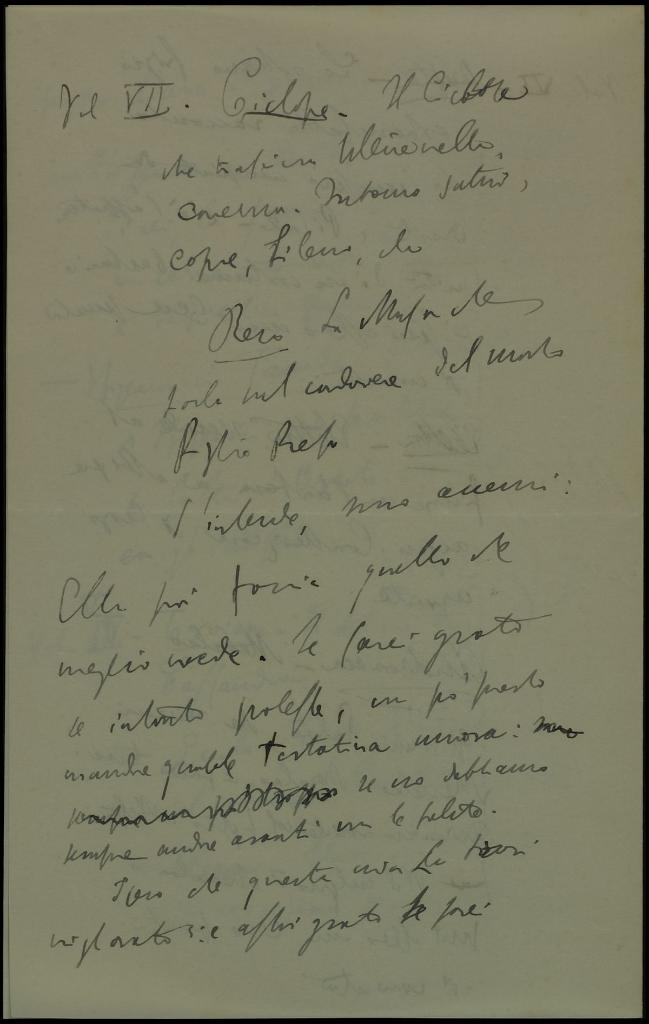 Vol VII. Ciclope. Il Ciclope
che
caverna. Intorno satiri,
capre, Sileno,
Reso La Musa che
sul cadavere del morto
figlio Reso
S'intende, sono accenni:
Ella poi faccia quello che
meglio crede. Le sarei grato
se intanto potesse, un po' presto
mandare qualche testatina nuova:
se no dobbiamo
sempre andare avanti con le solite.
Spero che questa mia La trovi
migliorato: e assai grato Le sarei